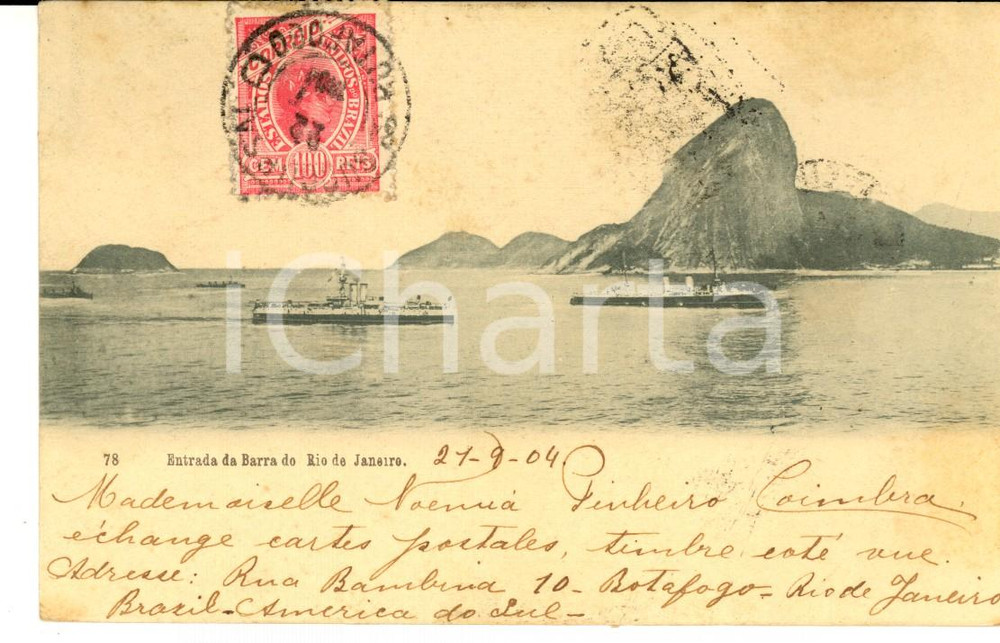 ESTADOS UNIDOS DO BRAZIL
CEM 100 REIS
iCharta
78 Entrada da Barra do Rio de Janeiro. 21-9-04
Mademoiselle Noemia Pinheiro Coimbra.
échange cartes postales, timbre coté vue.
Adresse: Rua Bambina 10 - Botafogo - Rio de Janeiro
Brazil - America do Sul -